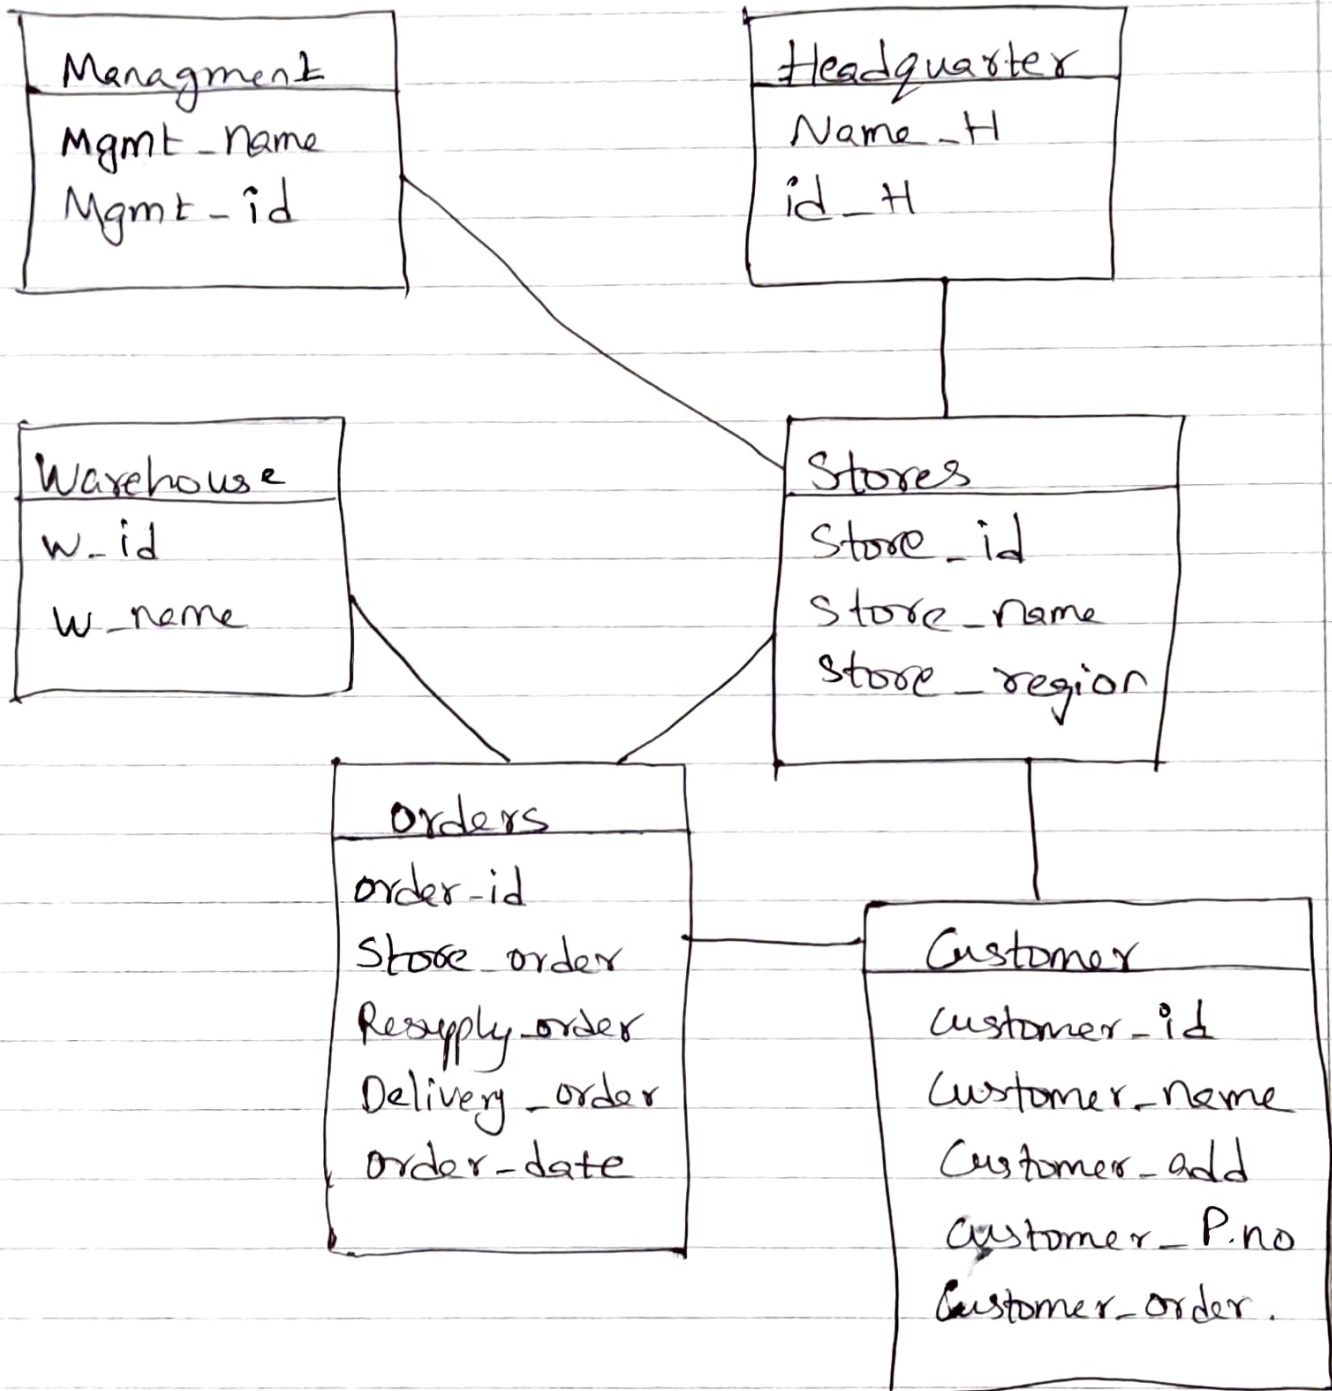 Managment
Mgmt_name
Mgmt_id
Headquarter
Name_H
id_H
Warehouse
W_id
W_name
Stores
Store_id
Store_name
Store_region
Orders
order_id
Store_order
Resupply_order
Delivery_order
order_date
Customer
Customer_id
Customer_name
Customer_add
Customer_P.no
Customer_order.